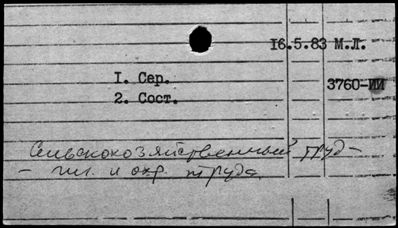 16.5.83 М.Л.
1. Сер.
3760-ИИ
2. Сост.
Сельскохозяйственный труд –
– гиг. и охр. труда